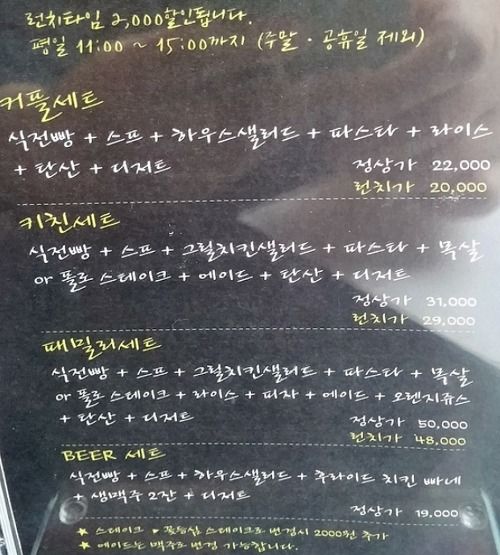 런치타임 2,000할인됩니다.
평일 11:00 ~ 15:00까지 (주말 · 공휴일 제외)
커플세트
식전빵 + 스프 + 하우스샐러드 + 파스타 + 라이스
+ 탄산 + 디저트 정상가 22,000
런치가 20,000
키친세트
식전빵 + 스프 + 그릴치킨샐러드 + 파스타 + 목살
or 풀로 스테이크 + 에이드 + 탄산 + 디저트
정상가 31,000
런치가 29,000
패밀리세트
식전빵 + 스프 + 그릴치킨샐러드 + 파스타 + 목살
or 풀로 스테이크 + 라이스 + 피자 + 에이드 + 오렌지쥬스
+ 탄산 + 디저트 정상가 50,000
런치가 48,000
BEER 세트
식전빵 + 스프 + 하우스샐러드 + 후라이드 치킨 빠네
+ 생맥주 2잔 + 디저트
정상가 19,000
★ 스테이크 → 꽃등심 스테이크로 변경시 2000원 추가
★ 에이드는 맥주로 변경 가능합니다.